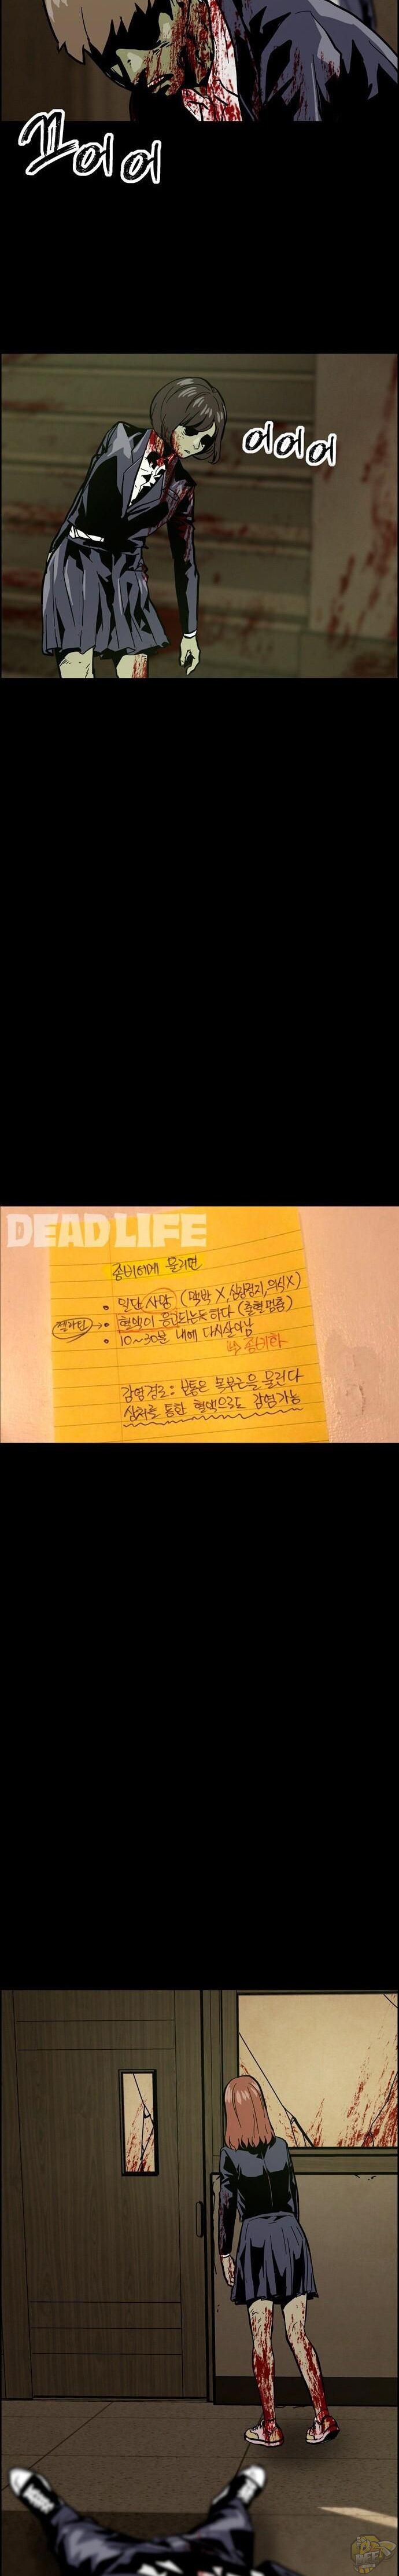 끄어어
어어어
DEAD LIFE
좀비에게 물리면
• 일단 사망 (맥박 X, 심장정지, 의식 X)
젤라틴 → • 혈액이 응고되는듯하다 (출혈 멈춤)
• 10~30분 내에 다시살아남
↳ 좀비화
감염경로: 보통은 목부근을 물린다
상처를 통한 혈액으로도 감염가능